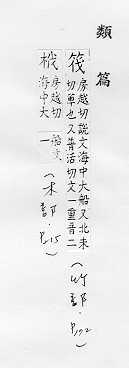 類篇
筏 房越切說文海中大船又北末
切箄也又蒲活切文一重音二
(竹部·P.172)
橃 房越切
海中大
船文
一
(木部·P.215)